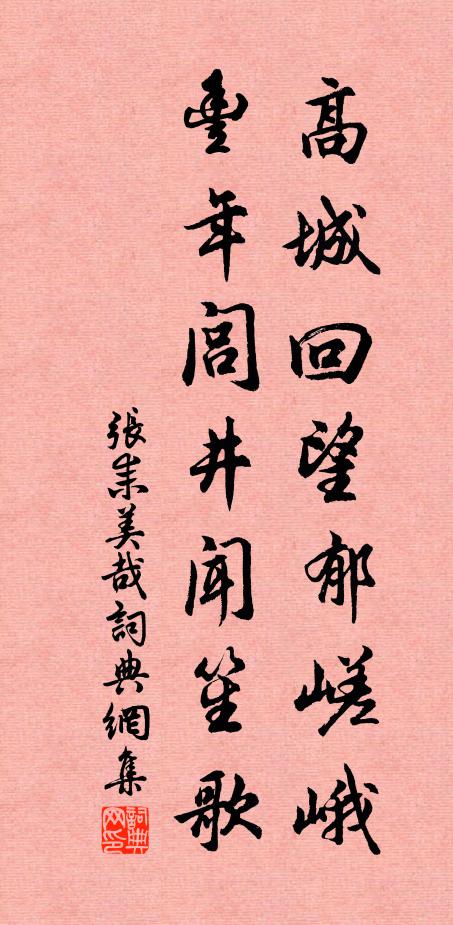 高城回望郁嵯峨
豐年閭井聞笙歌
張耒美哉詞典網集
詞典网印